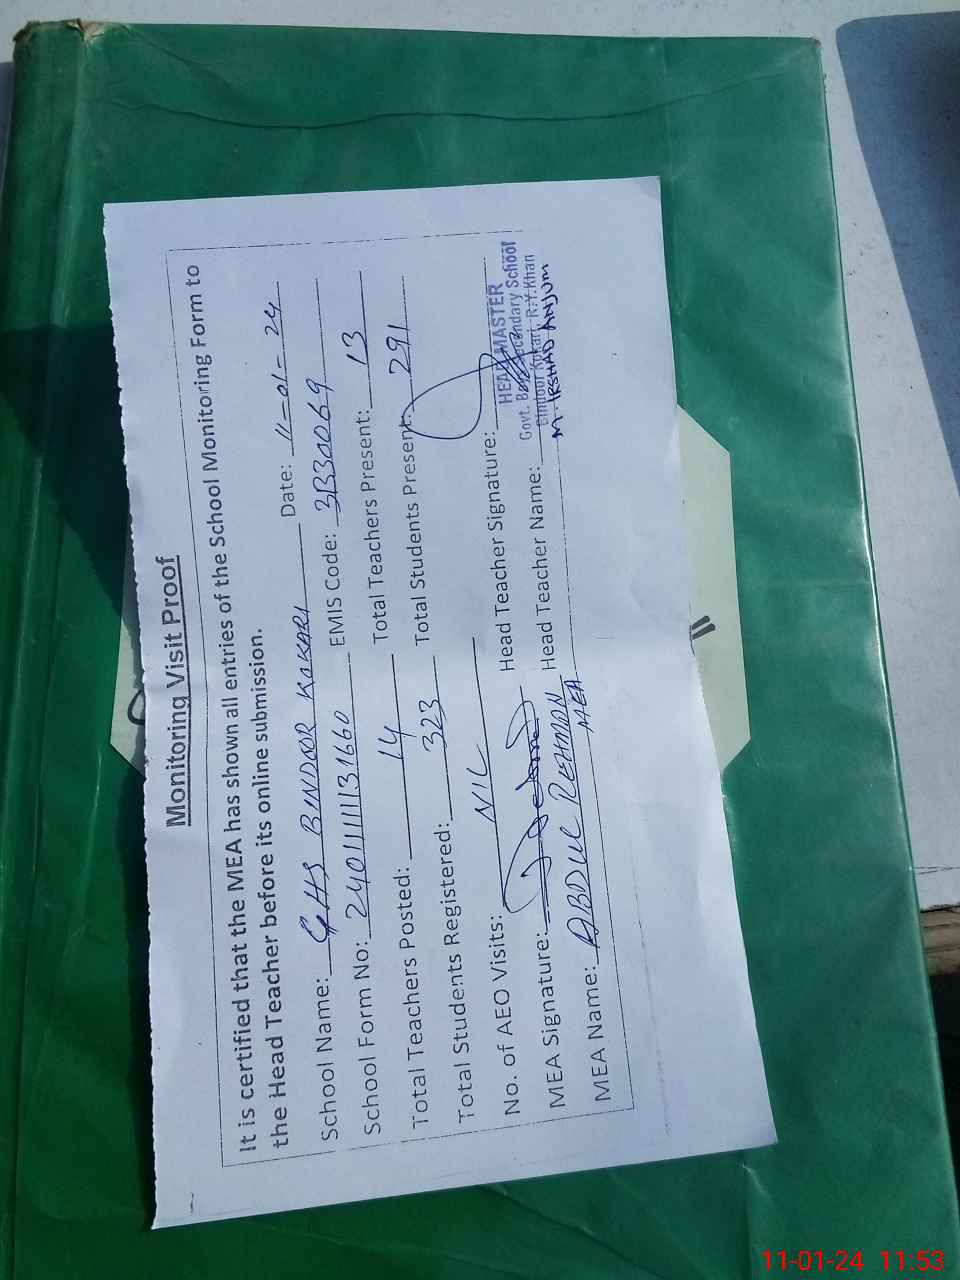 Monitoring Visit Proof
It is certified that the MEA has shown all entries of the School Monitoring Form to
the Head Teacher before its online submission.
School Name: GHS BINDOOR KOKARI Date: 11-01-24
School Form No: 24011111131660 EMIS Code: 31330069
Total Teachers Posted: 14 Total Teachers Present: 13
Total Students Registered: 323 Total Students Present: 291
No. of AEO Visits: NIL
MEA Signature: Head Teacher Signature:
HEAD MASTER
Govt. Boys Secondary School
Bindoor Kokari R.Y.Khan
MEA Name: ABDUL REHMAN MEA Head Teacher Name: M. IRSHAD ANJUM
11-01-24 11:53